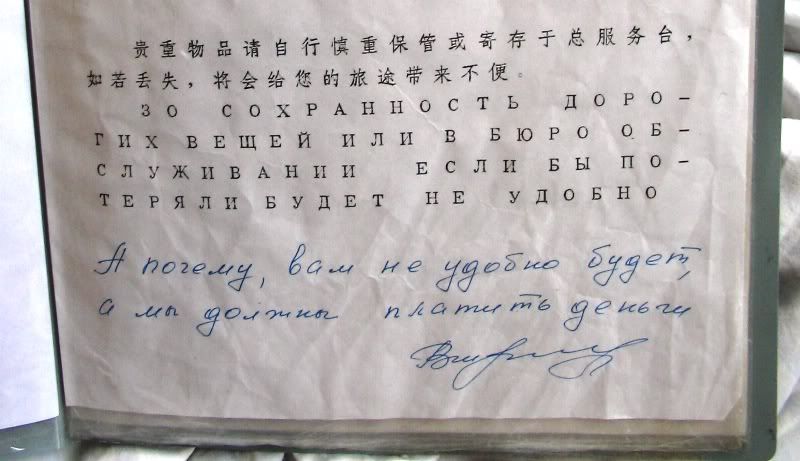 贵重物品请自行慎重保管或寄存于总服务台，
如若丢失，将会给您的旅途带来不便。
ЗО СОХРАННОСТЬ ДОРО-
ГИХ ВЕЩЕЙ ИЛИ В БЮРО ОБ-
СЛУЖИВАНИИ ЕСЛИ БЫ ПО-
ТЕРЯЛИ БУДЕТ НЕ УДОБНО
А почему, вам не удобно будет,
а мы должны платить деньги